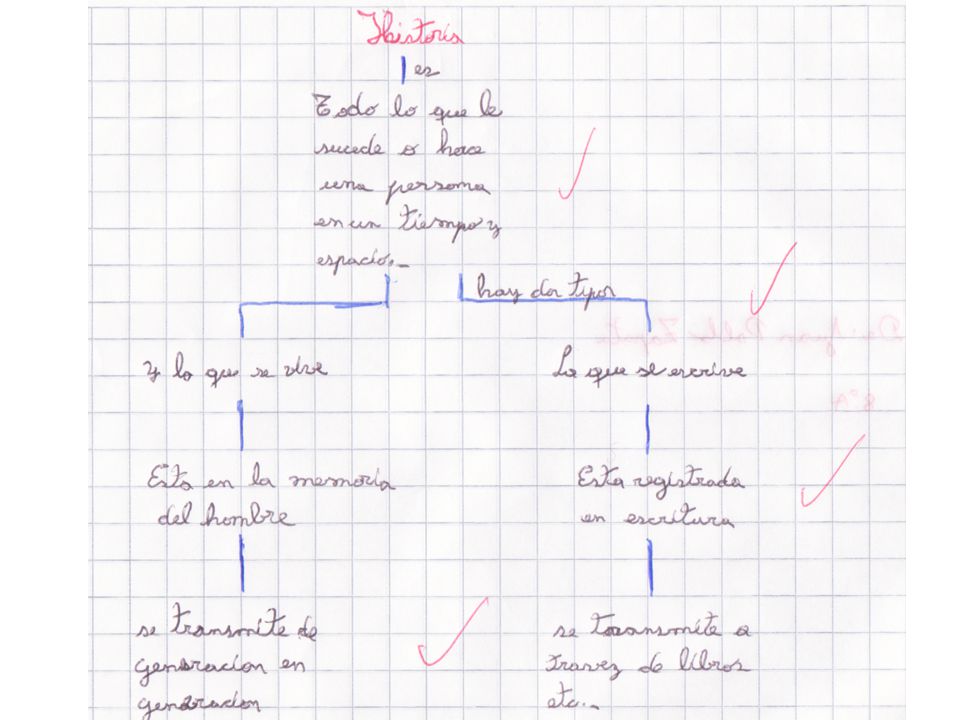 Historia
es
Todo lo que le
sucede o hace
una persona
en un tiempo y
espacio.-
hay dos tipos
y lo que se vive
La que se escrive
Esta en la memoria
del hombre
Esta registrada
en escritura
se transmite de
generacion en
generacion
se transmite a
travez de libros
etc.-